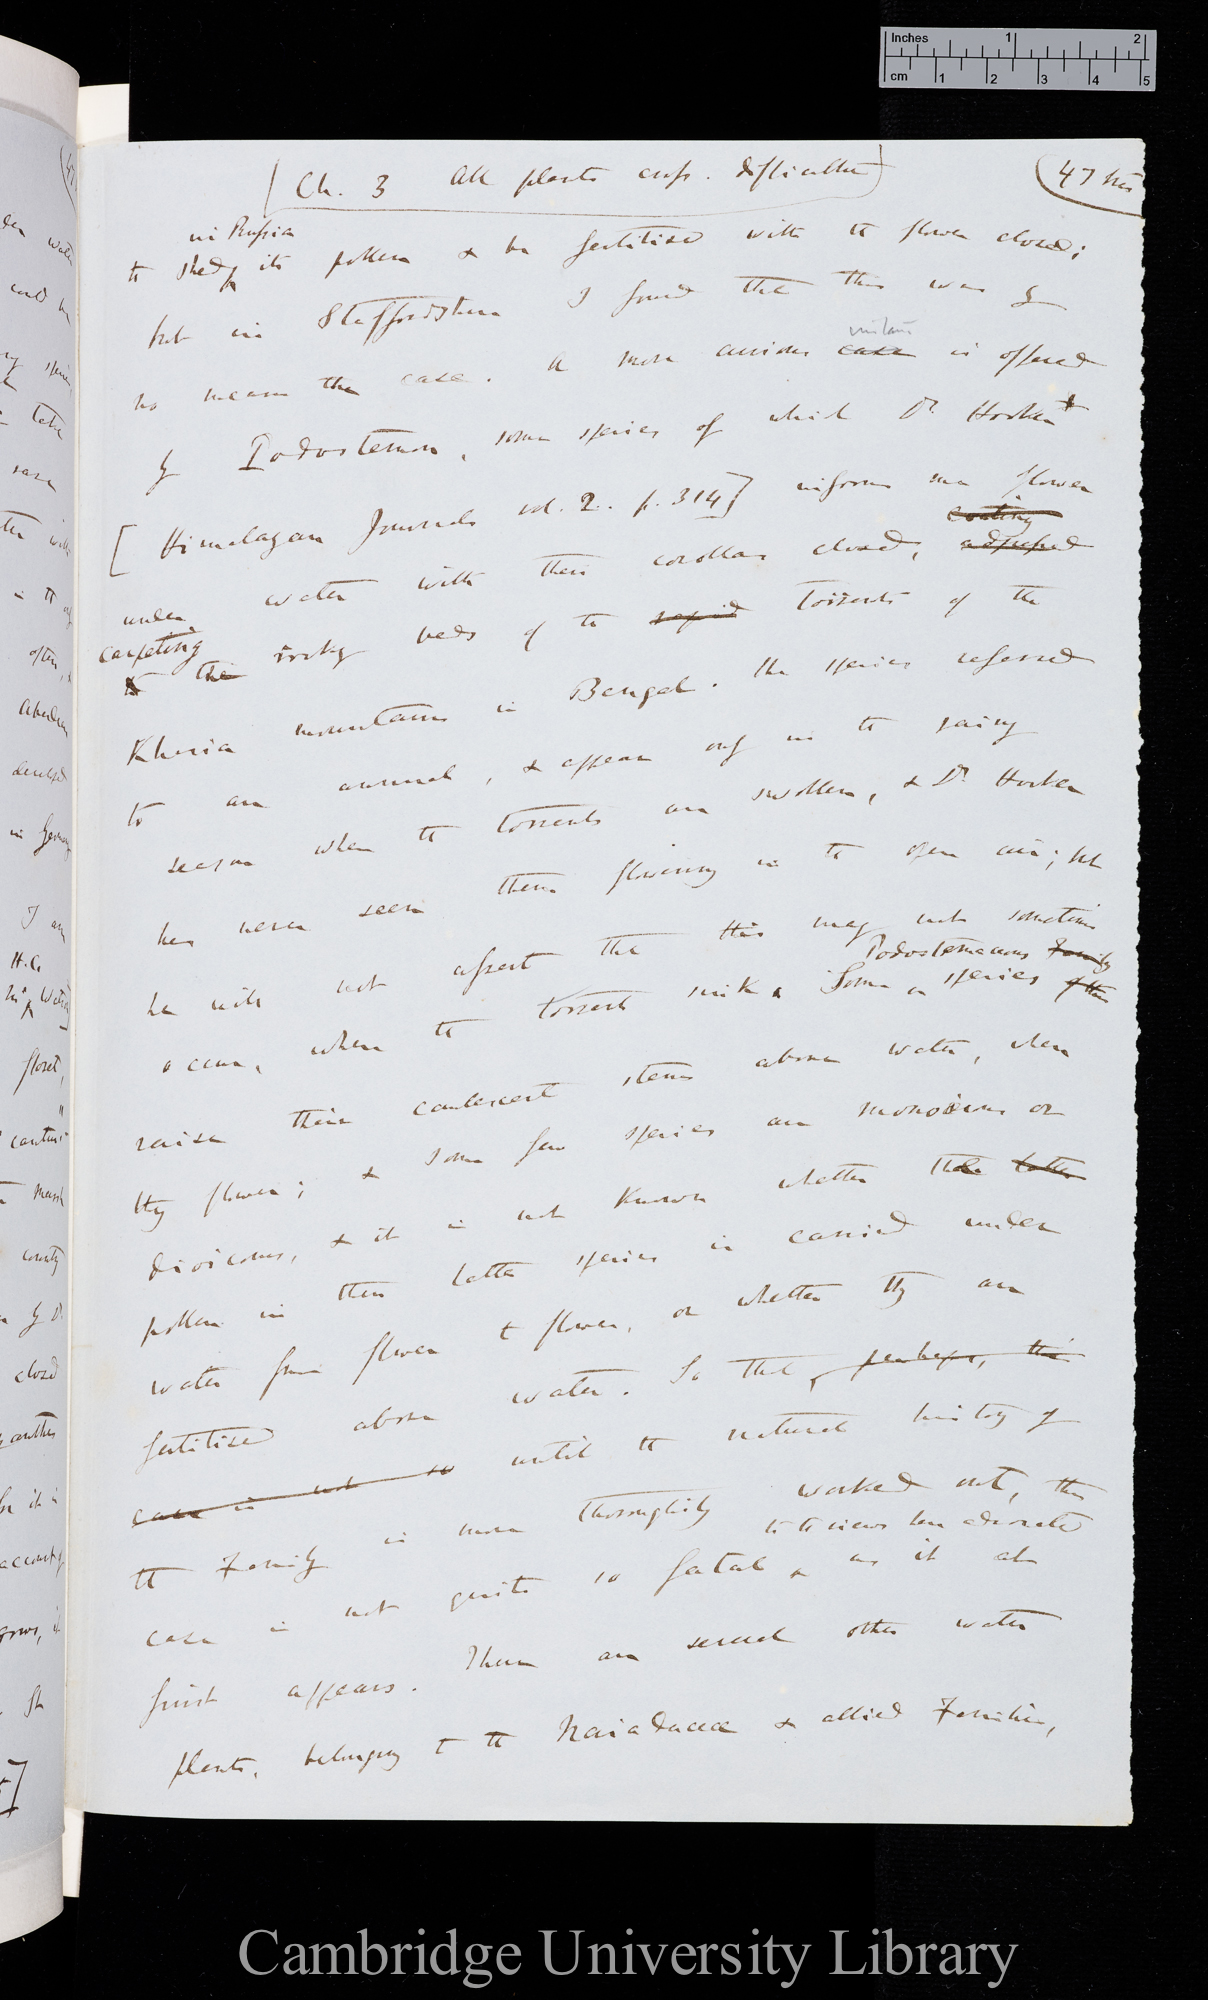 Inches 1 2
cm 1 2 3 4 5
[Ch. 3 All plants cross. difficulties]
(47 bis
in Russia
to shed its pollen & be fertilised with the flower closed;
but in Staffordshire I found that this was by
instance
no means the case. A more curious case is offered
by Podostemon, some species of which Dr. Hooker
[Himalayan Journals vol. 2. p. 314] informs me flower
coating
under water with their corollas closed, adpressed
carpeting
to the rocky beds of the rapid torrents of the
Khasia mountains in Bengal. The species referred
to are annual, & appear only in the rainy
season when the torrents are swollen, & Dr. Hooker
has never seen them flowering in the open air; but
he will not assert that this may not sometimes
Podostemaceous Family
occur, when the torrents sink. Some species of this
raise their caulescent stems above water, when
they flower; & some few species are monoicous or
dioicous, & it is not known whether the latter
pollen in these latter species is carried under
water from flower to flower, or whether they are
fertilised above water. So that, perhaps, this
case is not so until the natural history of
the Family is more thoroughily worked out, this
to the views here advocated
case is not quite so fatal as it at
first appears. There are several other water
plants, belonging to the Naiadaceæ & allied Families,
Cambridge University Library